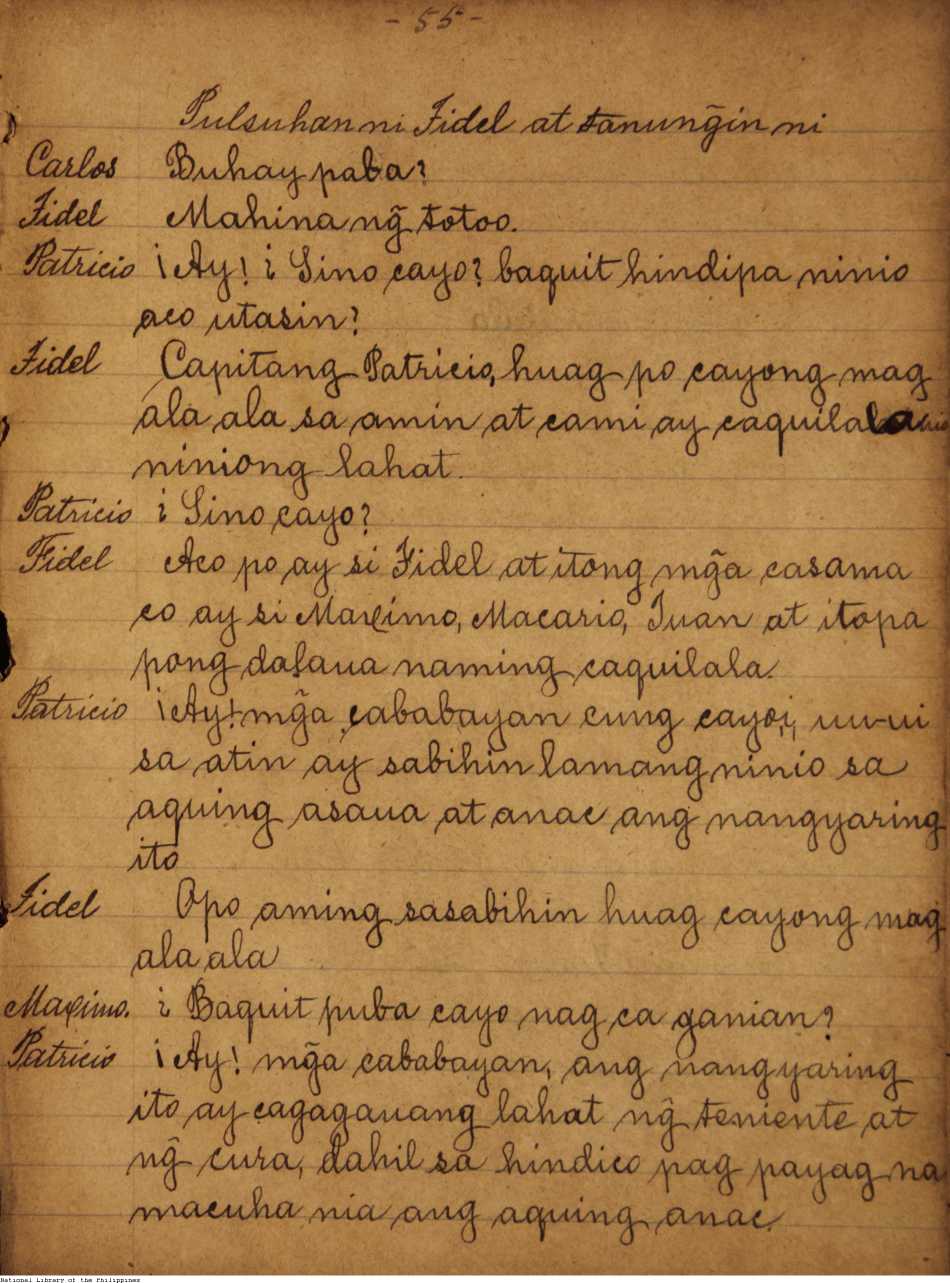 - 55 -
Pulsuhan ni Fidel at tanungin̄ ni
Carlos Buhay paba?
Fidel Mahina ng̃ totoo.
Patricio ¡Ay! ¿Sino cayo? baquit hindipa ninio
aco utasin?
Fidel Capitang Patricio, huag po cayong mag
ala ala sa amin at cami ay caquilala
niniong lahat.
Patricio ¿Sino cayo?
Fidel Aco po ay si Fidel at itong mg̃a casama
co ay si Maximo, Macario, Juan at itopa
pong dalaua naming caquilala.
Patricio ¡Ay! mg̃a cababayan cung cayoi, uu-ui
sa atin ay sabihin lamang ninio sa
aquing asaua at anac ang nangyaring
ito
Fidel Opo aming sasabihin huag cayong mag
ala ala
Maximo. ¿Baquit puba cayo nag ca ganian?
Patricio ¡Ay! mg̃a cababayan, ang nangyaring
ito ay cagagauang lahat ng̃ teniente at
ng̃ cura, dahil sa hindico pag payag na
macuha nia ang aquing anac.
National Library of the Philippines